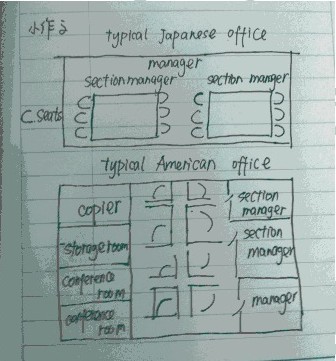 小作文
typical Japanese office
manager
section manager section manager
C.seats
typical American office
copier
section
manager
storage room
section
manager
conference
room
manager
conference
room